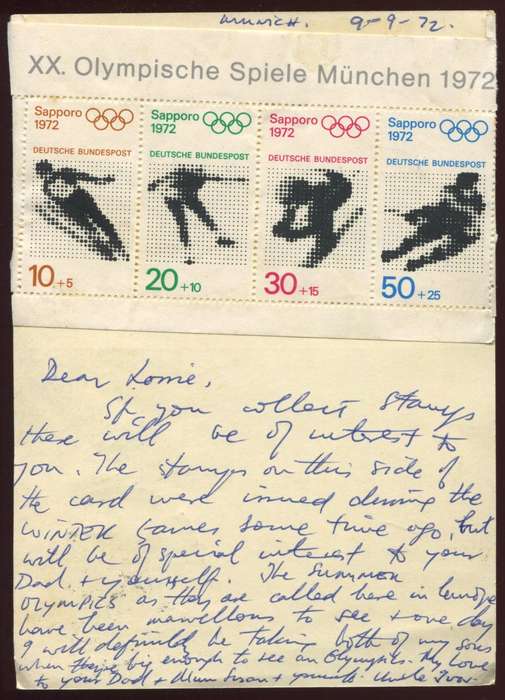 Munich. 9-9-72.
XX. Olympische Spiele München 1972
Sapporo 1972
DEUTSCHE BUNDESPOST
10+5
Sapporo 1972
DEUTSCHE BUNDESPOST
20+10
Sapporo 1972
DEUTSCHE BUNDESPOST
30+15
Sapporo 1972
DEUTSCHE BUNDESPOST
50+25
Dear Lorrie,
If you collect stamps
these will be of interest to
you. The stamps on this side of
the card were issued during the
WINTER Games some time ago, but
will be of special interest to your
Dad + yourself. The SUMMER
OLYMPICS as they are called here in Europe
have been marvellous to see + one day
I will definitely be taking both of my sons
when they're big enough to see an Olympics. My love
to your Dad + Mum Susan + yourself. Uncle Ivor.